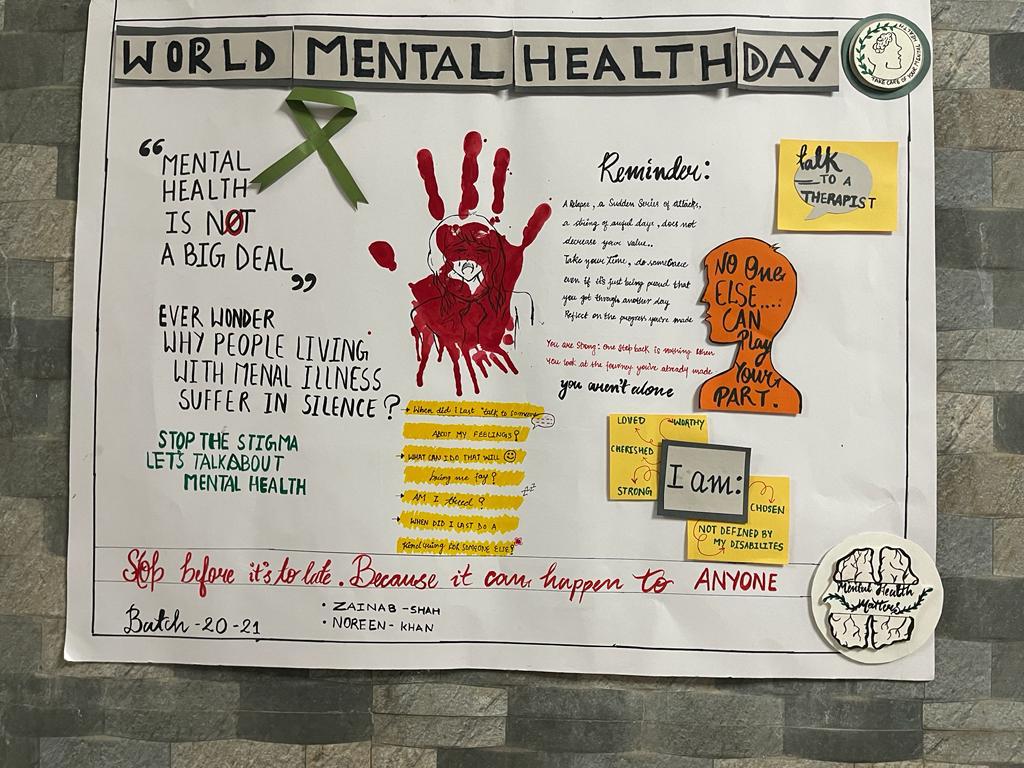 WORLD MENTAL HEALTH DAY
TAKE CARE OF YOUR
“MENTAL
HEALTH
IS NOT
A BIG DEAL”
EVER WONDER
WHY PEOPLE LIVING
WITH MENAL ILLNESS
SUFFER IN SILENCE?
STOP THE STIGMA
LETS TALK ABOUT
MENTAL HEALTH
When did i last "talk to someone
ABOUT MY FEELINGS?
WHAT CAN I DO THAT WILL
bring me joy?
AM I tired?
WHEN DID I LAST DO A
kind thing FOR SOMEONE ELSE?
Reminder:
A Relapse, a Sudden Series of attacks,
a string of awful days, does not
decrease your value..
Take your time, do
even if it's just being proud that
you got through another day
Reflect on the progress you've made
You are strong: One step back is nothing when
you look at the journey you've already made
you aren't alone
talk
TO A
THERAPIST
NO One
ELSE....
CAN
Play
Your
PART.
LOVED
WORTHY
CHERISHED
STRONG
I am:
CHOSEN
NOT DEFINED BY
MY DISABILITES
Stop before it's to late. Because it can happen to ANYONE
Batch-20-21
• ZAINAB-SHAH
• NOREEN-KHAN
Mental Health
Matters